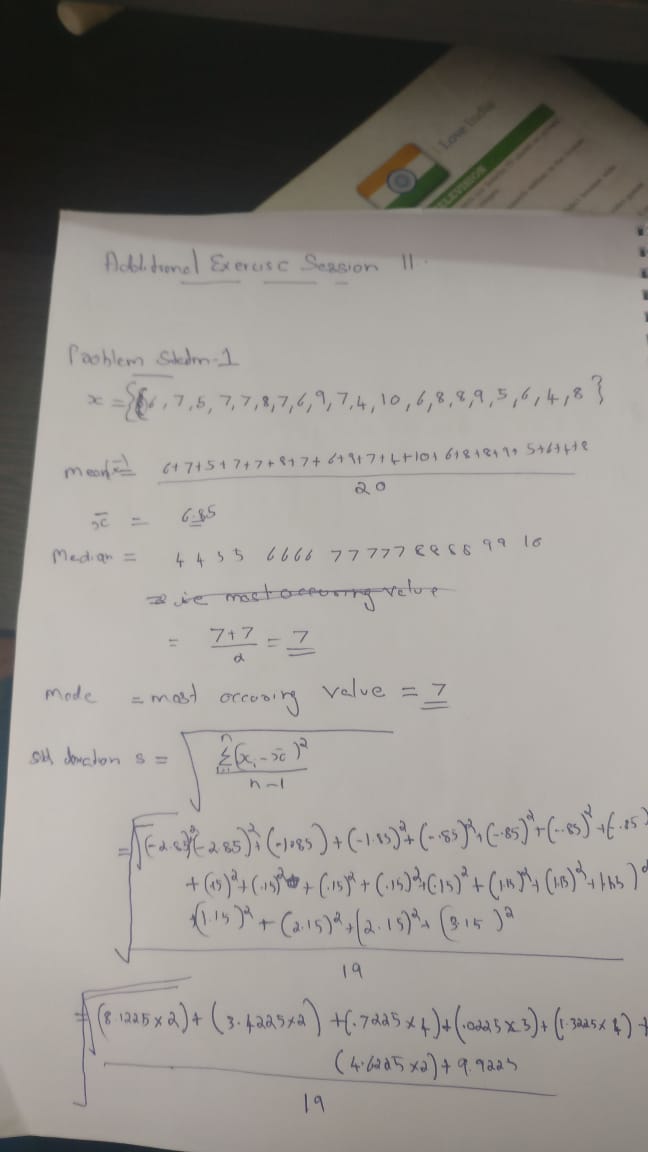 Love India
TELEVISION
Additional Exercise Session 11
Problem Stdm-1
x = {6, 7, 5, 7, 7, 8, 7, 6, 9, 7, 4, 10, 6, 8, 8, 9, 5, 6, 4, 8}
mean(x̄) = 6+7+5+7+7+8+7+6+9+7+4+10+6+8+8+9+5+6+4+8
20
x̄ = 6.85
Median = 4 4 5 5 6666 77777 8888 99 10
ie most occuring value
= 7+7 = 7
2
mode = most occuring value = 7
std deviation s = √ Σ(xi - x̄)²
n-1
= √(-2.85)²+(-2.85)²+(-1.85)+(-1.85)²+(-.85)²+(-.85)²+(-.85)²+(-.85)
+(.15)²+(.15)²+(.15)²+(.15)²+(.15)²+(1.15)²+(1.15)²+(1.15)²
+(1.15)²+(2.15)²+(2.15)²+(3.15)²
19
= √(8.1225×2)+(3.4225×2)+(.7225×4)+(.0225×5)+(1.3225×4)+
(4.6225×2)+9.9225
19